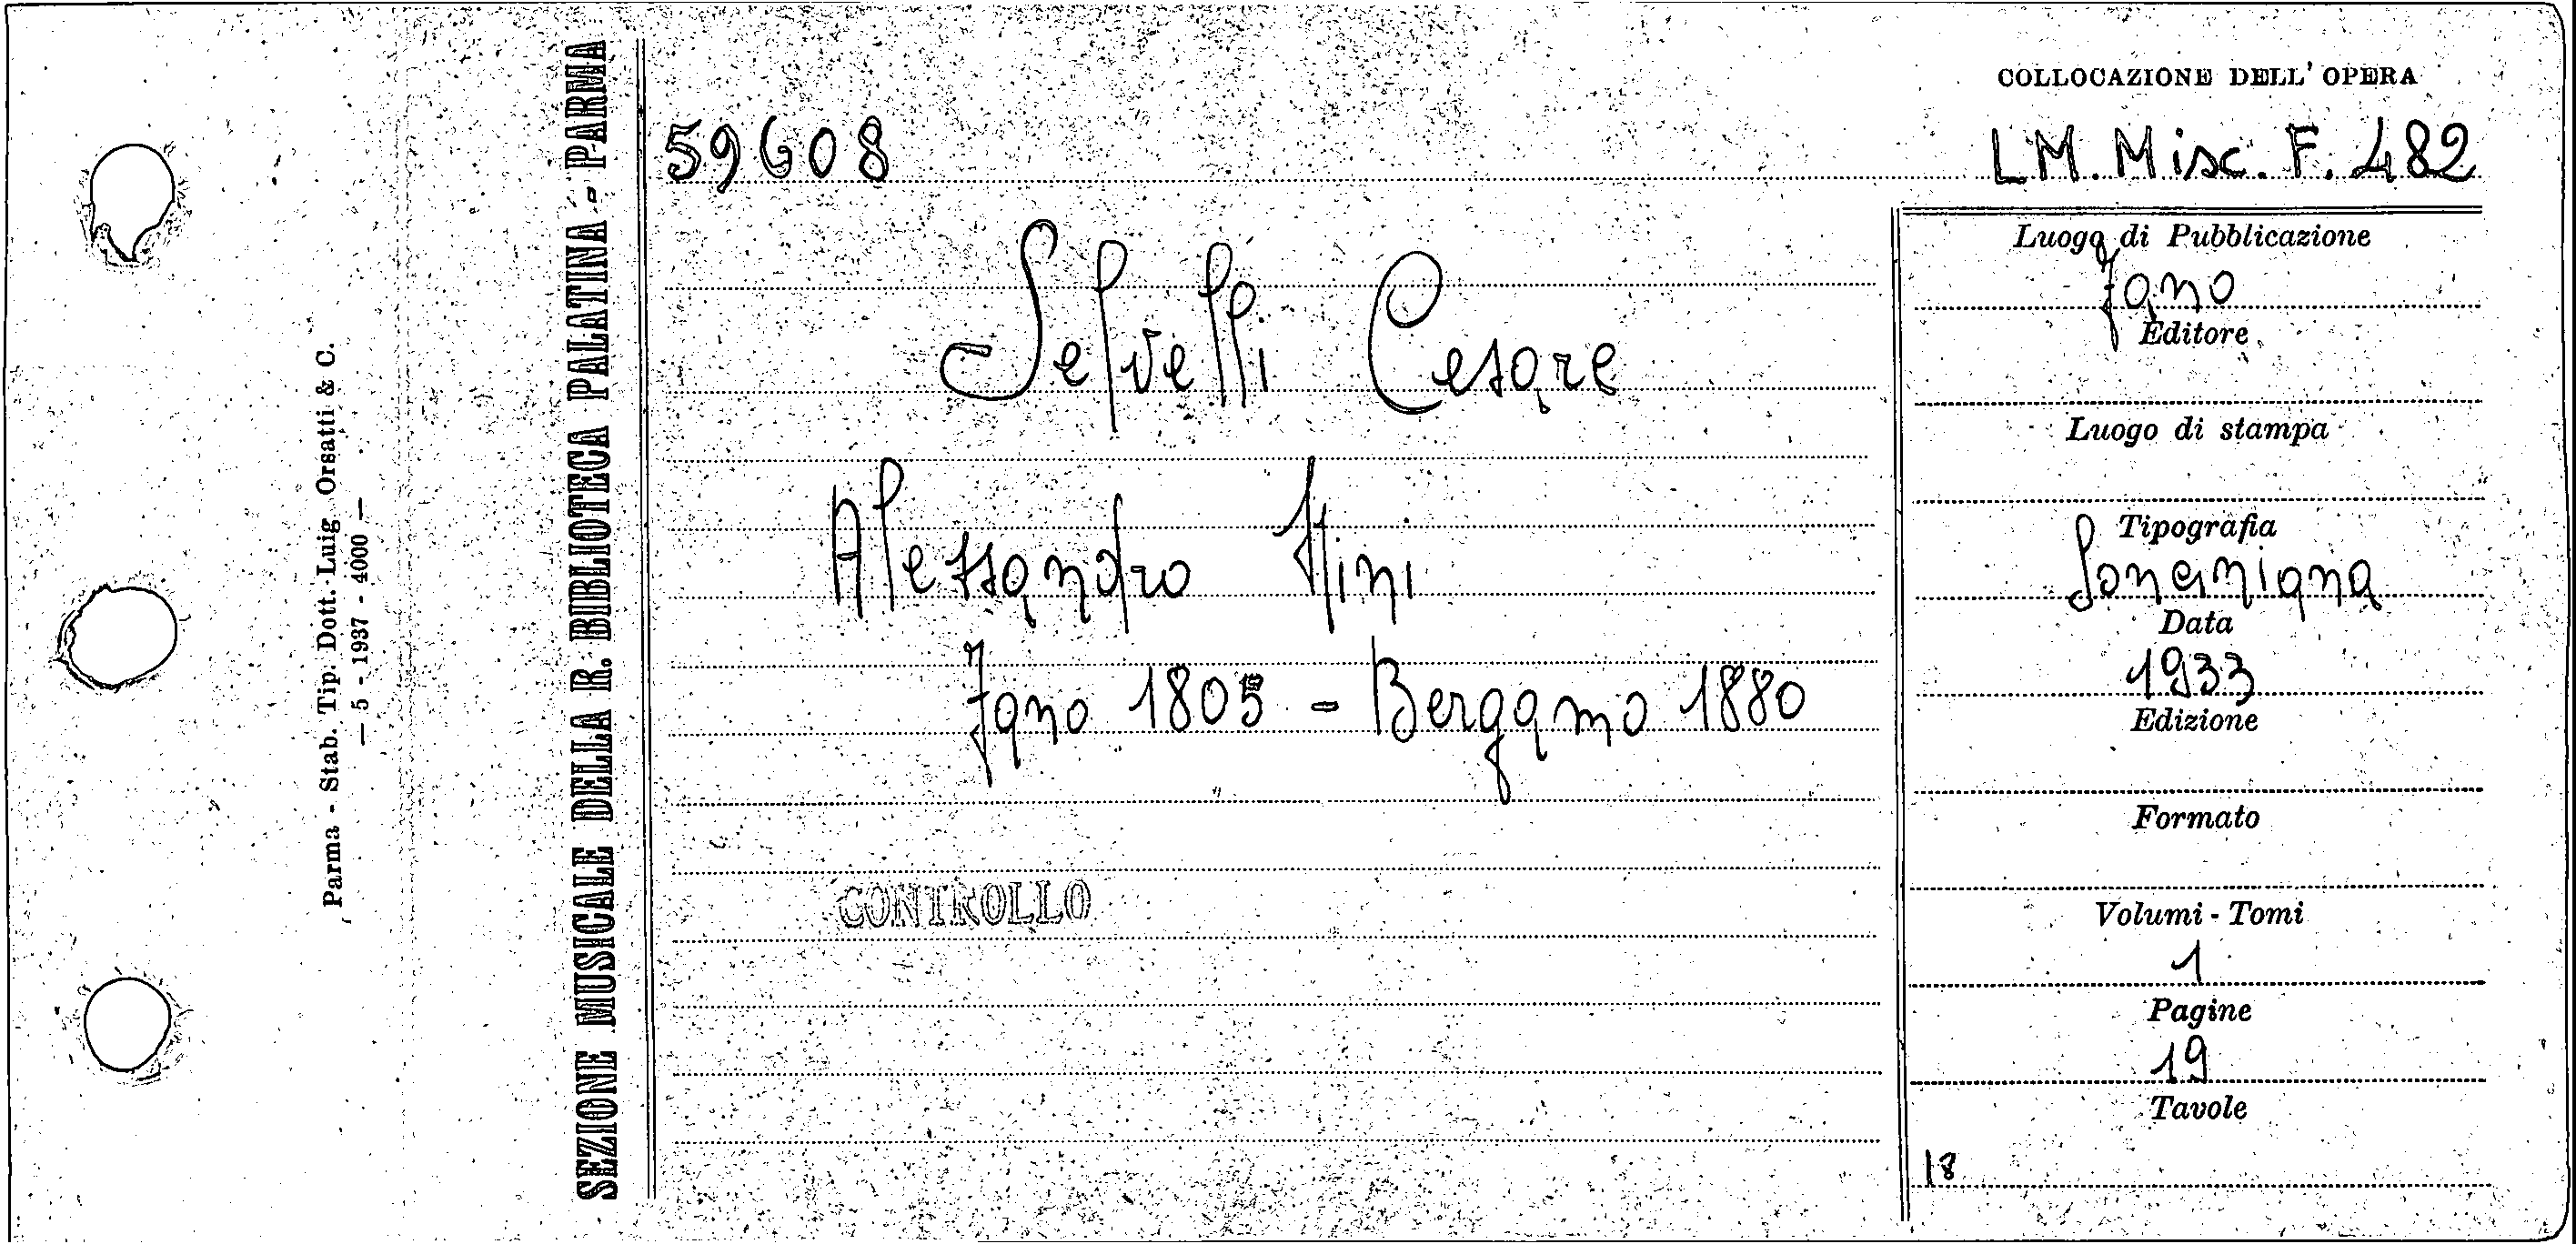 COLLOCAZIONE DELL'OPERA
59608
LM. Misc. F. 482
Selvelli Cesare
Alessandro Nini
Fano 1805 - Bergamo 1880
CONTROLLO
Luogo di Pubblicazione
Fano
Editore
Luogo di stampa
Tipografia
Sonciniana
Data
1933
Edizione
Formato
Volumi - Tomi
1
Pagine
19
Tavole
18
SEZIONE MUSICALE DELLA R. BIBLIOTECA PALATINA - PARMA
Parma - Stab. Tip. Dott. Luig Orsatti & C.
— 5 - 1937 - 4000 —